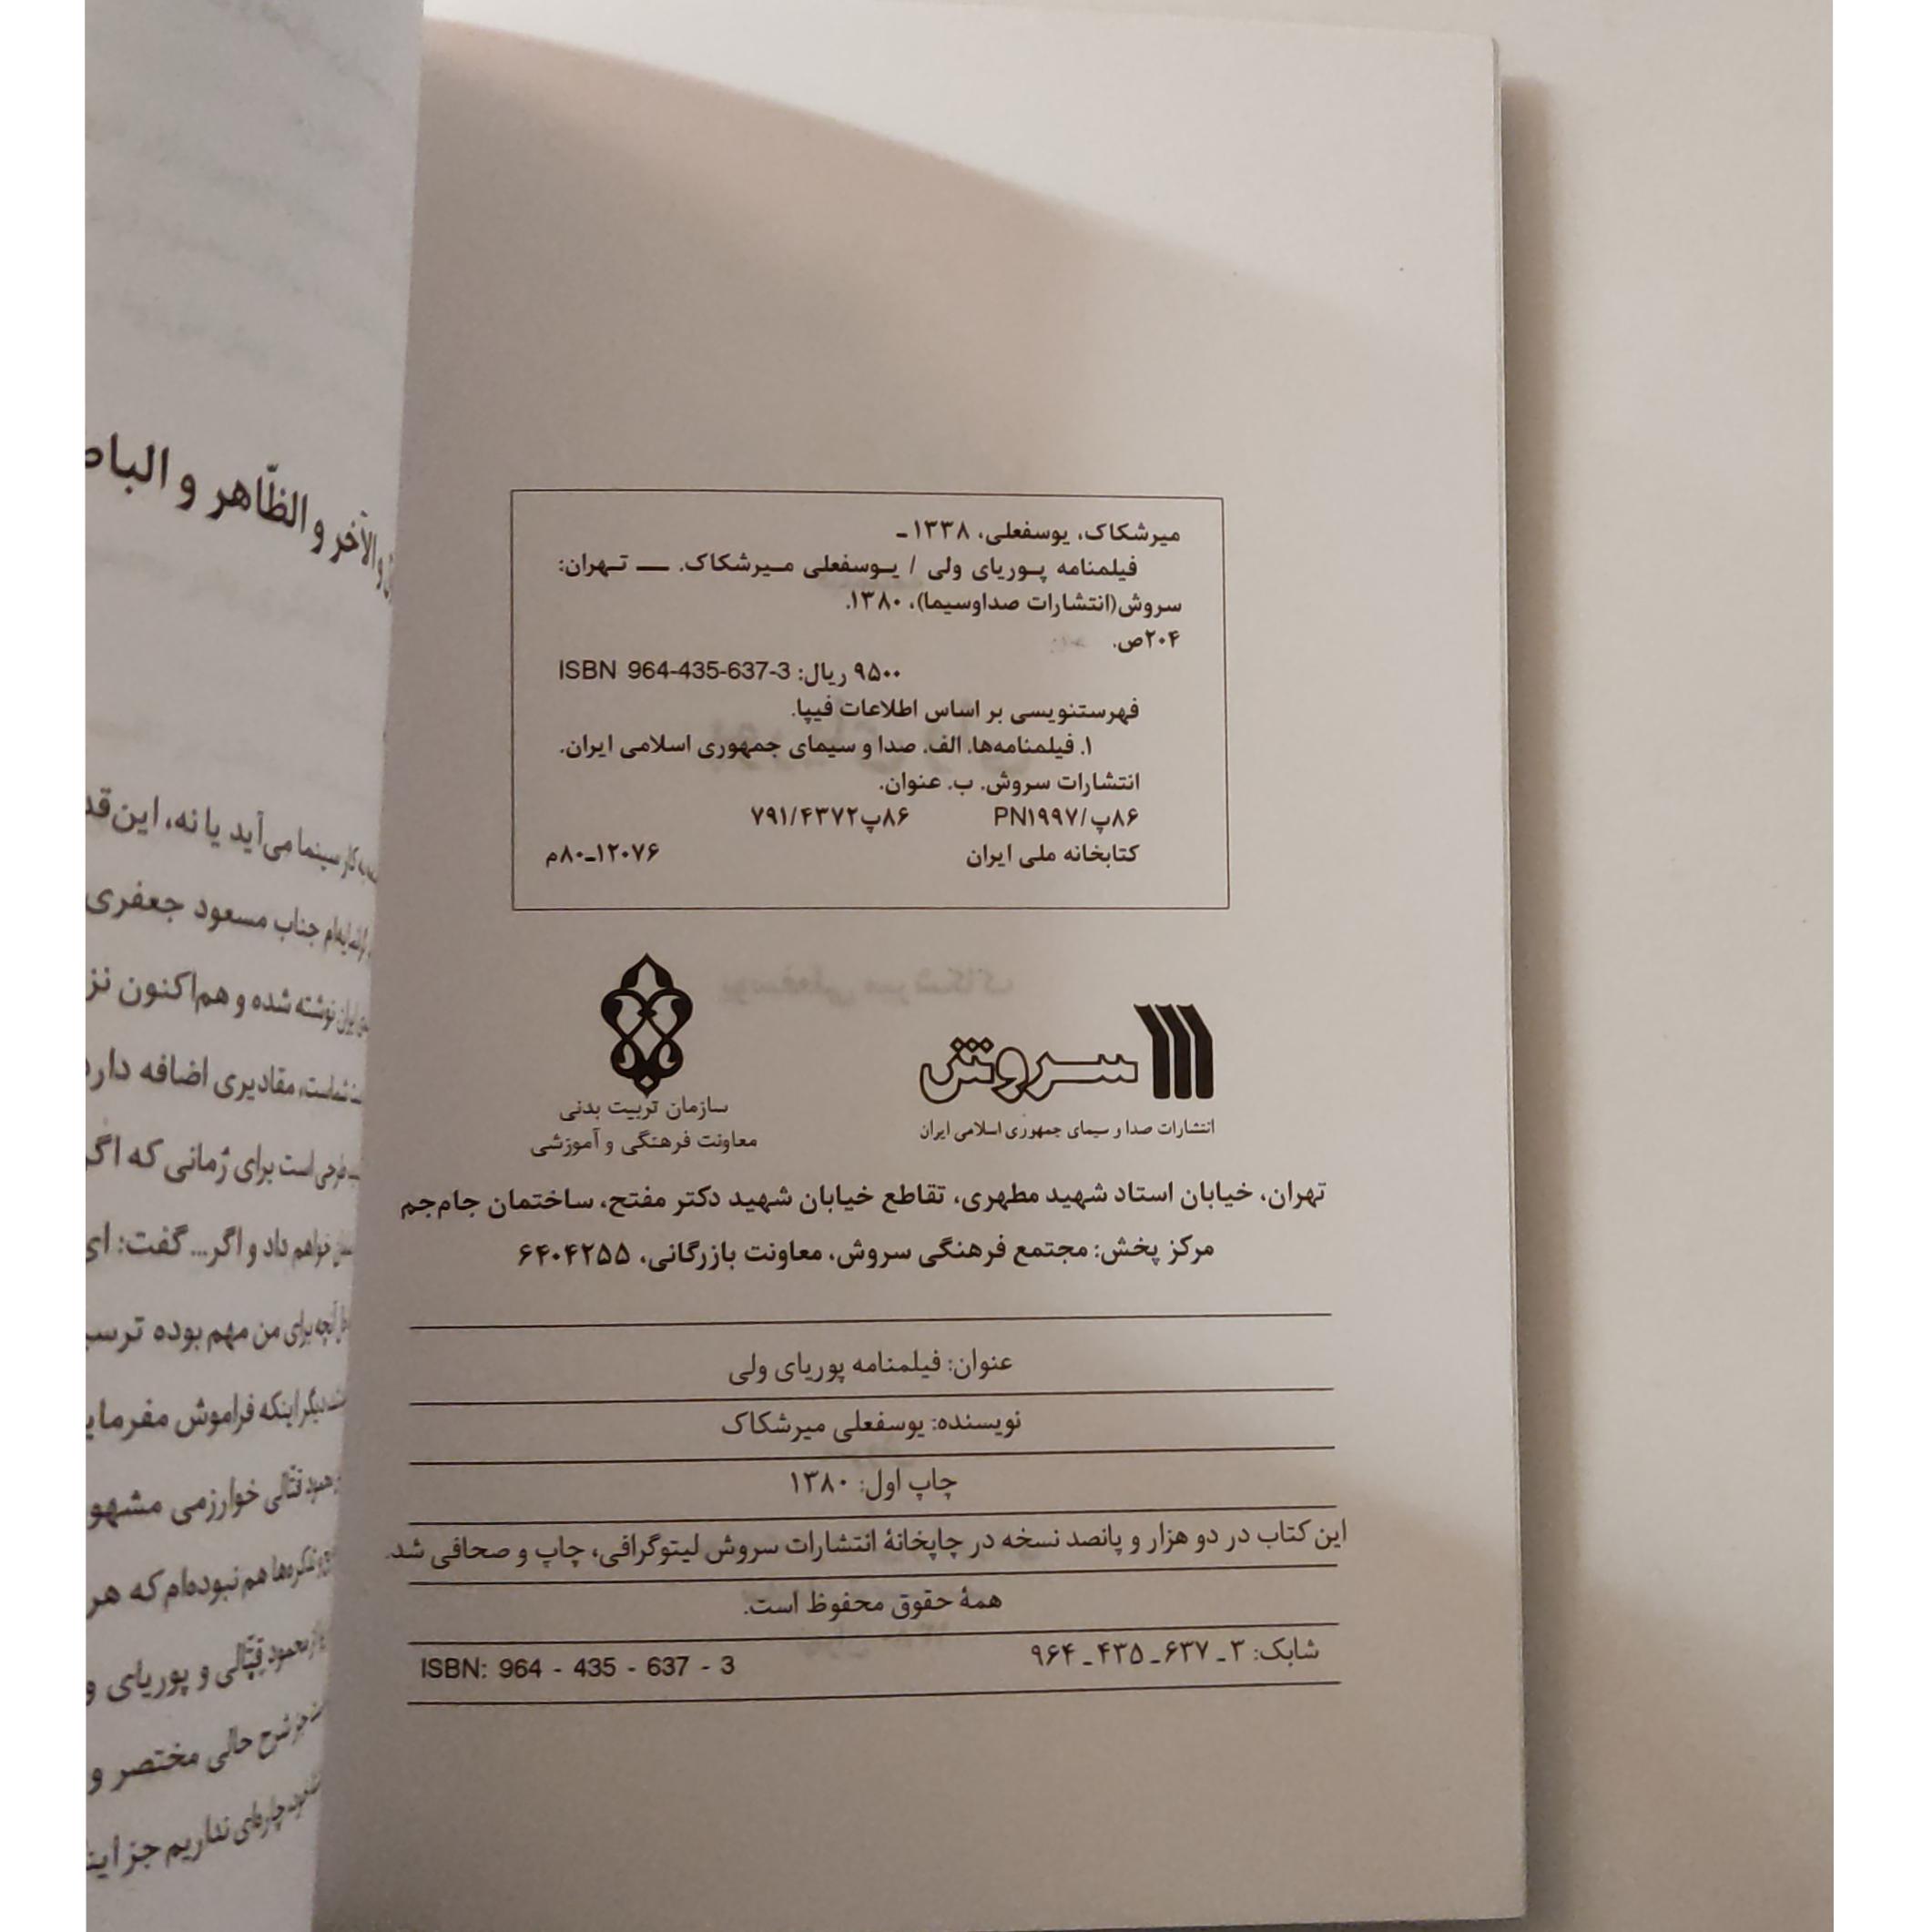 میرشکاک، یوسفعلی، ۱۳۳۸ -
فیلمنامه پوریای ولی / یوسفعلی میرشکاک. — تهران:
سروش(انتشارات صداوسیما)، ۱۳۸۰.
۲۰۴ص.
۹۵۰۰ ریال: ISBN 964-435-637-3
فهرستنویسی بر اساس اطلاعات فیپا.
۱. فیلمنامه‌ها. الف. صدا و سیمای جمهوری اسلامی ایران.
انتشارات سروش. ب. عنوان.
۸۶پ/PN۱۹۹۷ ۸۶پ۷۹۱/۴۳۷۲
کتابخانه ملی ایران ۱۲۰۷۶-۸۰م
سروش
انتشارات صدا و سیمای جمهوری اسلامی ایران
سازمان تربیت بدنی
معاونت فرهنگی و آموزشی
تهران، خیابان استاد شهید مطهری، تقاطع خیابان شهید دکتر مفتح، ساختمان جام‌جم
مرکز پخش: مجتمع فرهنگی سروش، معاونت بازرگانی، ۶۴۰۴۲۵۵
عنوان: فیلمنامه پوریای ولی
نویسنده: یوسفعلی میرشکاک
چاپ اول: ۱۳۸۰
این کتاب در دو هزار و پانصد نسخه در چاپخانهٔ انتشارات سروش لیتوگرافی، چاپ و صحافی شد.
همهٔ حقوق محفوظ است.
شابک: ۳ - ۶۳۷ - ۴۳۵ - ۹۶۴ ISBN: 964 - 435 - 637 - 3
و الآخر و الظّاهر و
کار سینما می‌آید یا نه، این‌قد
جناب مسعود جعفری
نوشته شده و هم‌اکنون نز
مقادیری اضافه دارد
طرحی است برای زمانی که اگر
خواهم داد و اگر... گفت: ای
آنچه برای من مهم بوده
دیگر اینکه فراموش
قتالی خوارزمی
هم نبوده‌ام که هر
و پوریای و
شرح حالی مختصر و
چاره‌ای نداریم جز